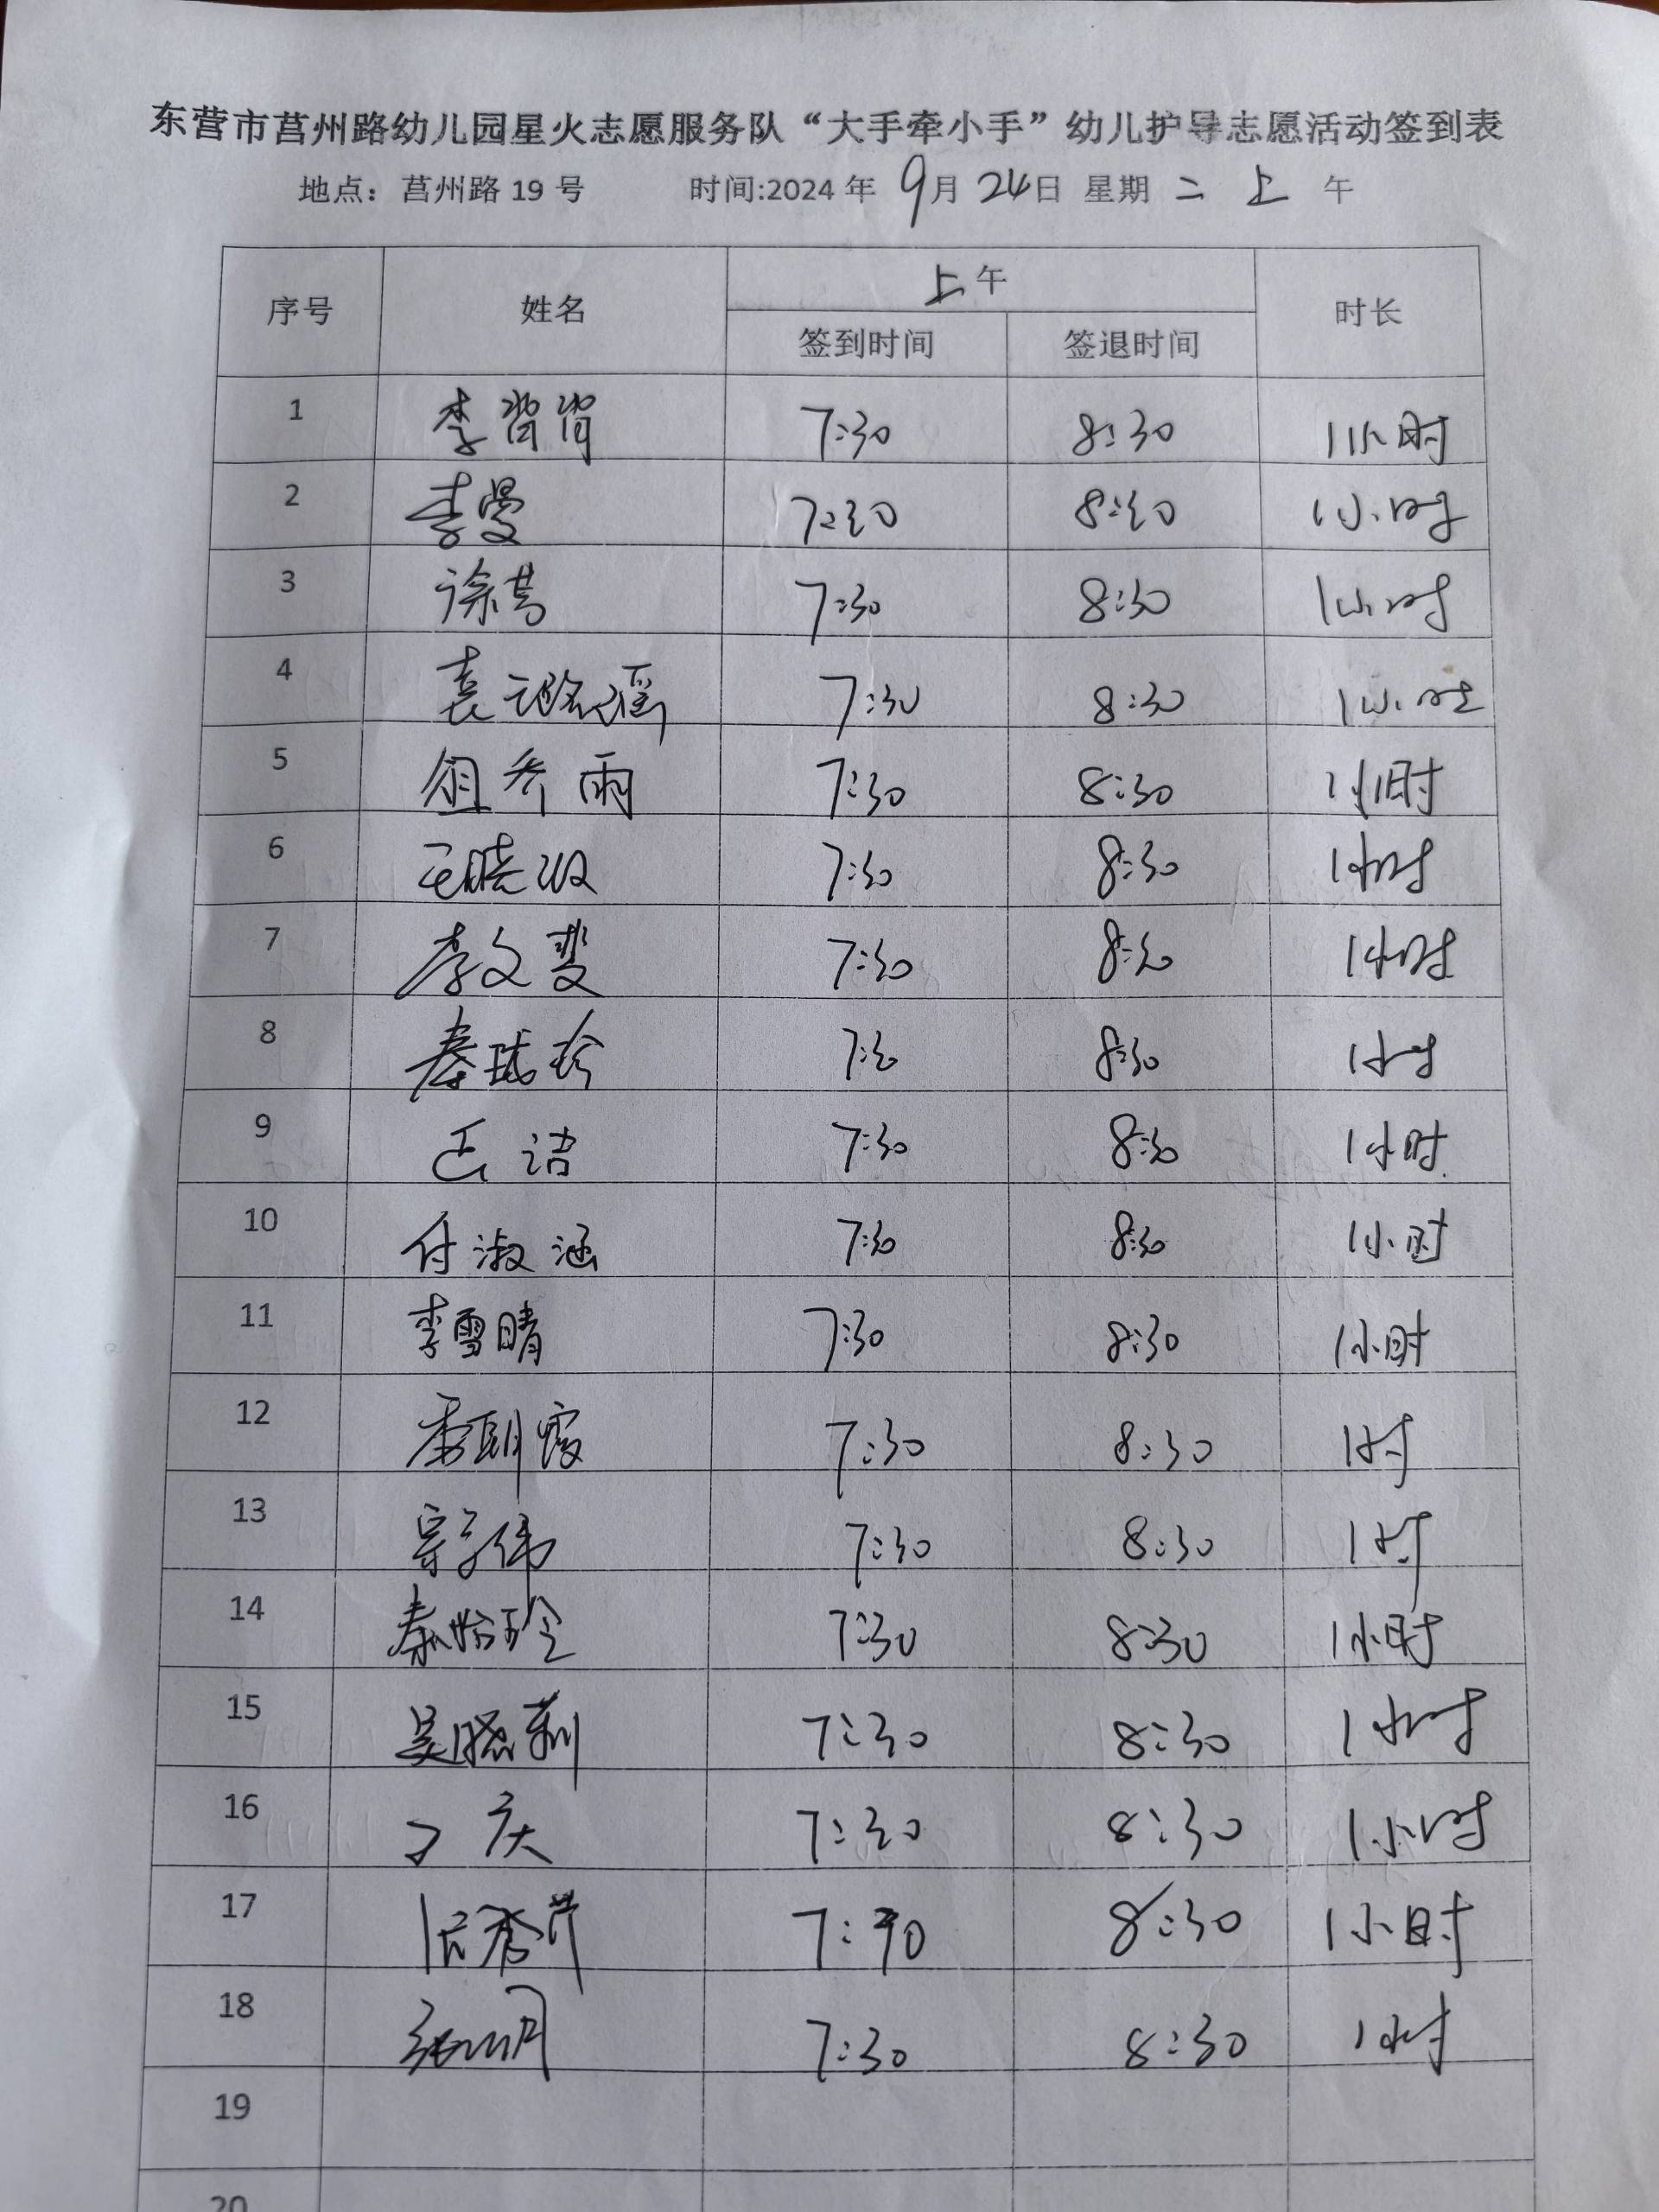 东营市莒州路幼儿园星火志愿服务队“大手牵小手”幼儿护导志愿活动签到表
地点：莒州路 19 号 时间:2024 年 9月 24日 星期 二 上 午
序号 姓名 上午 时长
签到时间 签退时间
1 李 7:30 8:30 1小时
2 李曼 7:30 8:30 1小时
3 徐 7:30 8:30 1小时
4 袁 瑶 7:30 8:30 1小时
5 雨 7:30 8:30 1小时
6 王晓 7:30 8:30 1小时
7 李文斐 7:30 8:30 1小时
8 秦 珍 7:30 8:30 1小时
9 王洁 7:30 8:30 1小时
10 付淑涵 7:30 8:30 1小时
11 李雪晴 7:30 8:30 1小时
12 李朝霞 7:30 8:30 1时
13 伟 7:30 8:30 1时
14 秦怡玲 7:30 8:30 1小时
15 吴晓莉 7:30 8:30 1小时
16 丁庆 7:30 8:30 1小时
17 秀芹 7:30 8:30 1小时
18 月 7:30 8:30 1小时
19
20